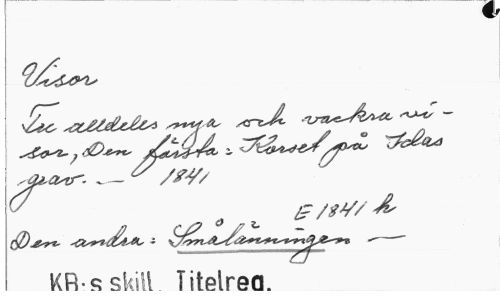 Visor
Tre alldeles nya och vackra vi-
sor, Den första: Korset på Idas
grav. — 1841
E 1841 h
Den andra: Smålänningen —
KB:s skill. Titelreg.